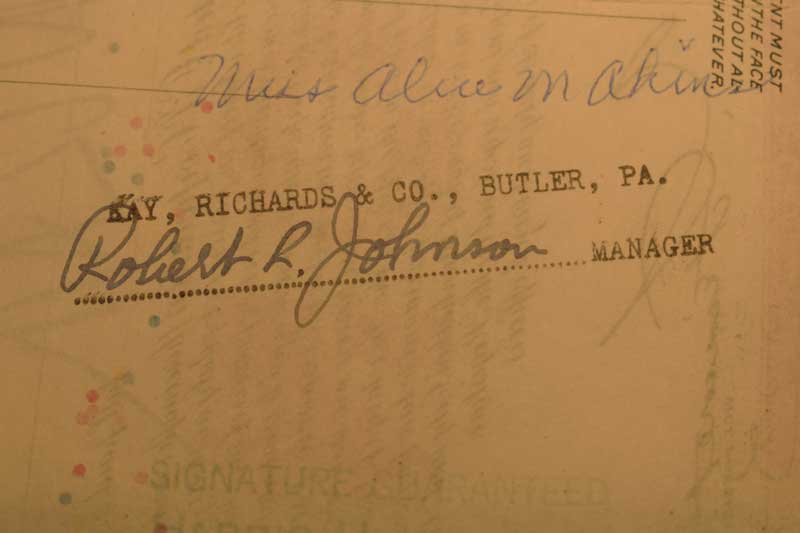 NT MUST
THE FACE
THOUT AL
HATEVER.
Miss Alice M Akins
KAY, RICHARDS & CO., BUTLER, PA.
Robert R. Johnson MANAGER
SIGNATURE GUARANTEED